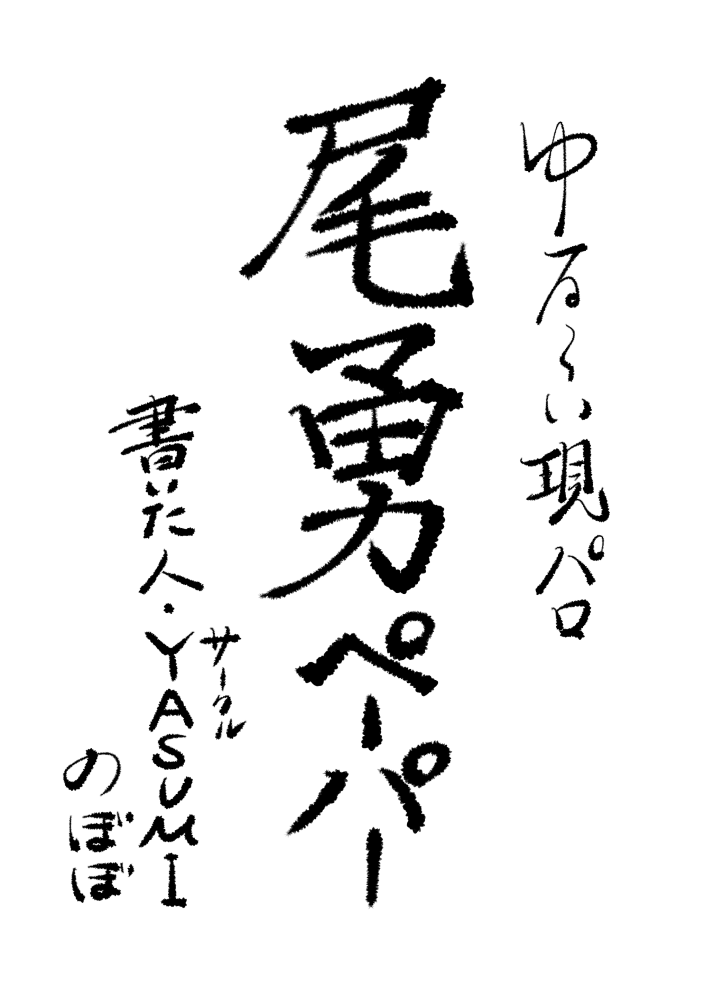 ゆるくい現パロ
尾勇ペーパー
サークル
書いた人・YASUMI
のぼぼ